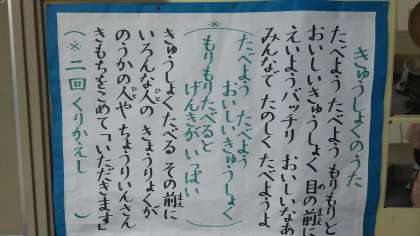 きゅうしょくのうた
たべよう たべよう もりもりと
おいしいきゅうしょく 目の前に
えいようバッチリ おいしいなあ
みんなで たのしく たべようよ
(※
たべよう たべよう
おいしいきゅうしょく
もりもりたべると
げんきが いっぱい
)
きゅうしょくたべる その前に
いろんな人の きょうりょくが
のうかの人や ちょうりいんさん
きもちをこめて「いただきます」
(※ 二回くりかえし )